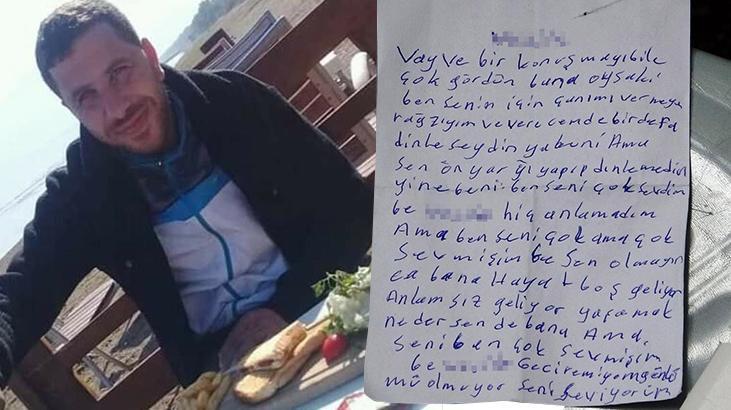 Vay ve bir konuşmayıbile
çok gördün bana oysaki
ben senin için canımı vermeye
rağzıyım ve verecemde birdefa
dinleseydin ya beni Ama
sen ön yargı yapıp dinlemedin
yine beni. ben seni çok sevdim
be hiç anlamadım
Ama ben seni çok ama çok
Sevmişim be Sen olmayın
ca bana Hayat boş geliyor
Anlamsız geliyor yaşamak
nedersen de bana Ama.
Seni ben çok sevmişim
be Geciremiyom günlü
mü olmuyor Seni Seviyorum